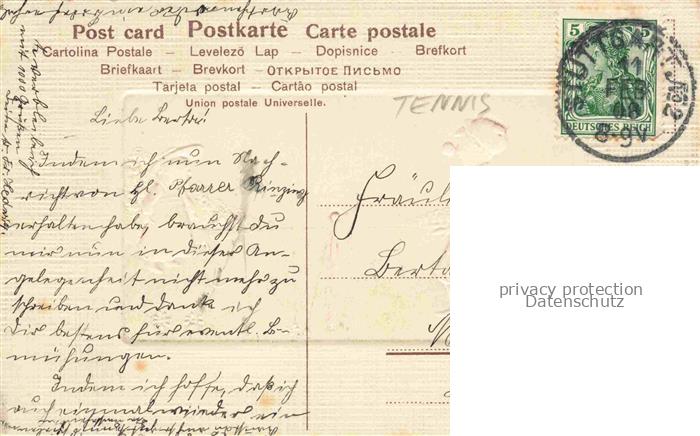 Post card Postkarte Carte postale
Cartolina Postale – Levelező Lap – Dopisnice – Brefkort
Briefkaart – Brevkort – Открытое Письмо
Tarjeta postal – Cartão postal
Union postale Universelle.
TENNIS
5 5
DEUTSCHES REICH
STUTTGART
11
FEB
8-9V
Liebe Berta!
Indem ich nun Nach-
richt von Hl. Pfarrer
erhalten habe, brauchst du
mir nun in dieser An-
gelegenheit nicht mehr zu
schreiben und danke ich
Dir bestens für eventl. Be-
mühungen.
Indem ich hoffe, daß ich
auch einmal wieder ein
verbleibe ich
mit 1000 Grüßen
Fräulein
Berta
privacy protection
Datenschutz